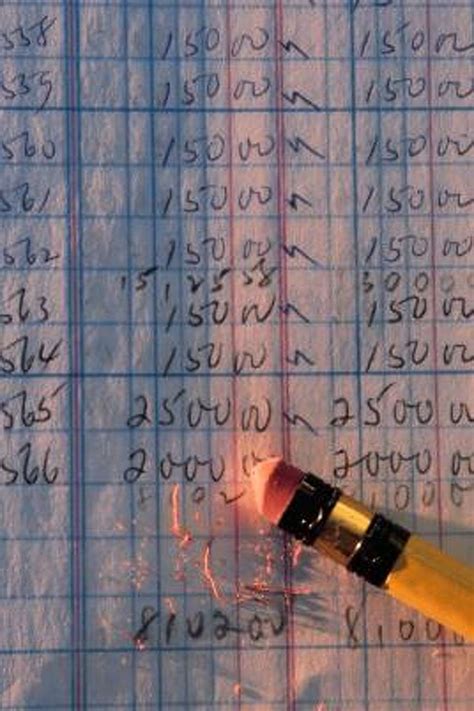 558 150 00 150 00
559 150 00 150 00
560 150 00 150 00
561 150 00 150 00
562 150 00 150 00
15 1 25 58 3 0 0 0
563 150 00 150 00
564 150 00 150 00
565 2500 00 2500 00
566 2000 2000 00
8102 00 8100